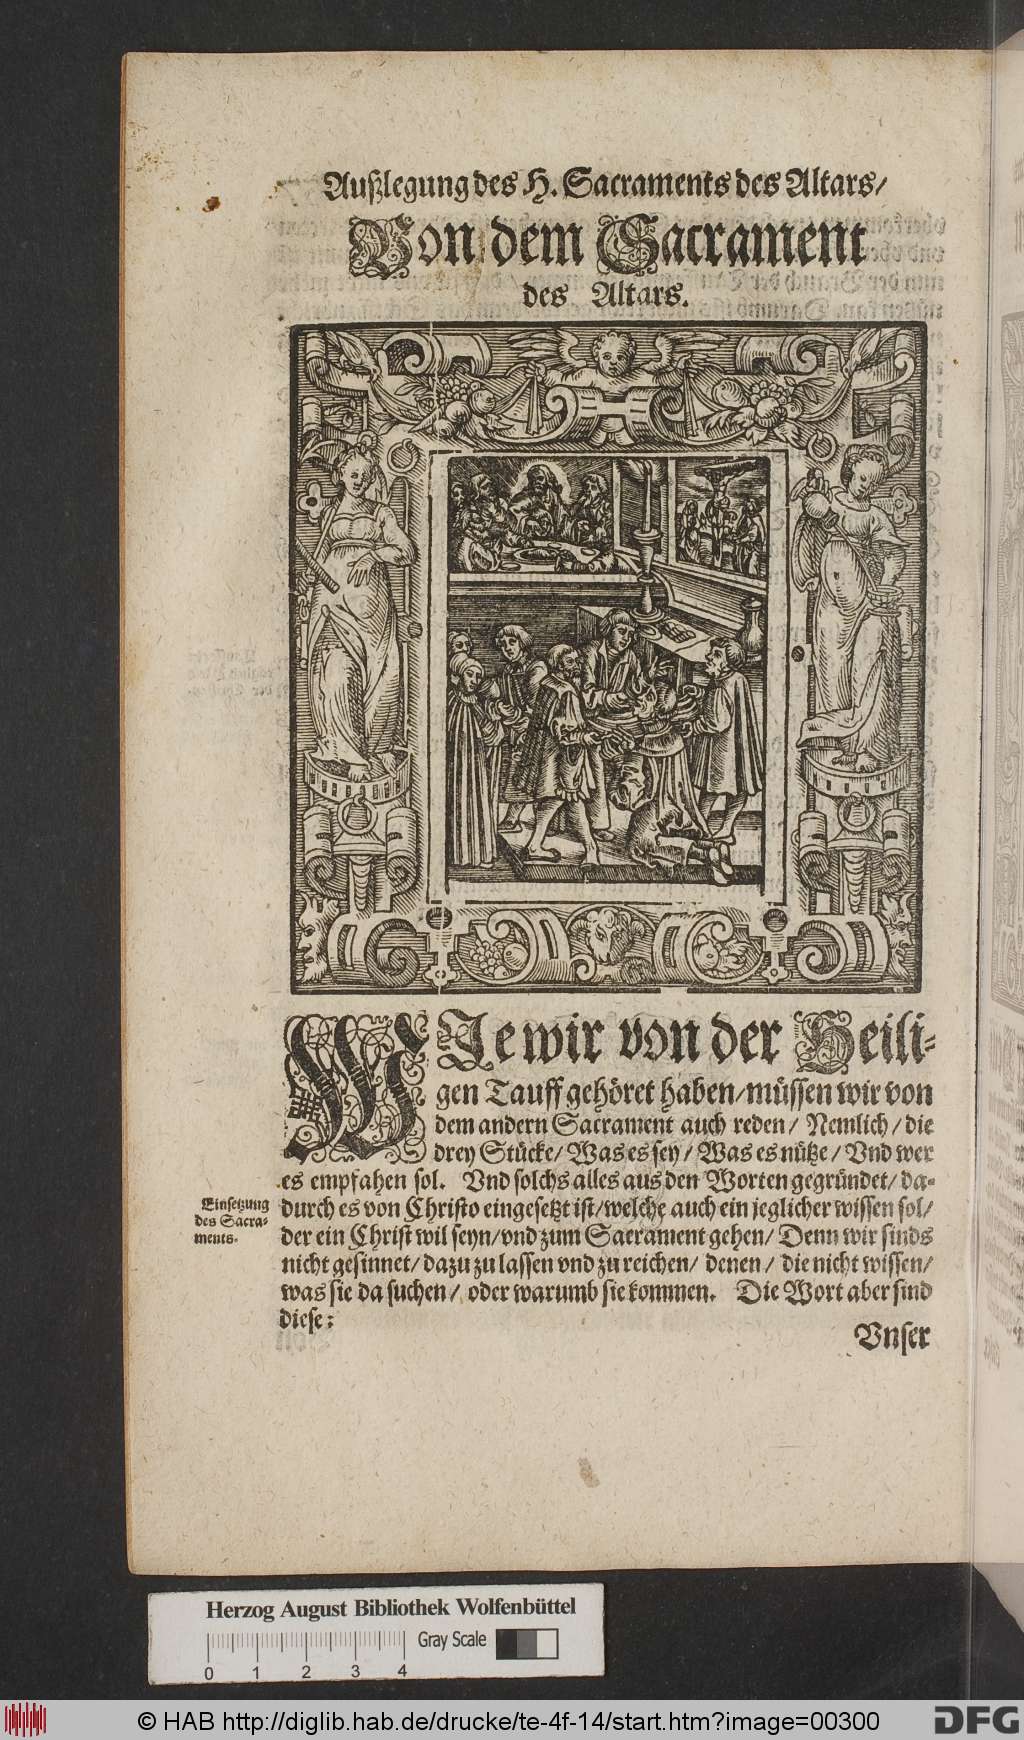 Außlegung des H. Sacraments des Altars/
Von dem Sacrament
des Altars.
WIe wir von der Heili-
gen Tauff gehöret haben/müssen wir von
dem andern Sacrament auch reden/ Nemlich/ die
drey Stücke/ Was es sey/ Was es nütze/ Vnd wer
es empfahen sol. Vnd solchs alles aus den Worten gegründet/ da-
Einsetzung
des Sacra-
ments.
durch es von Christo eingesetzt ist/welche auch ein jeglicher wissen sol/
der ein Christ wil seyn/vnd zum Sacrament gehen/ Denn wir sinds
nicht gesinnet/ dazu zu lassen vnd zu reichen/ denen/ die nicht wissen/
was sie da suchen/ oder warumb sie kommen. Die Wort aber sind
diese:
Vnser
Herzog August Bibliothek Wolfenbüttel
Gray Scale
0 1 2 3 4
© HAB http://diglib.hab.de/drucke/te-4f-14/start.htm?image=00300
DFG